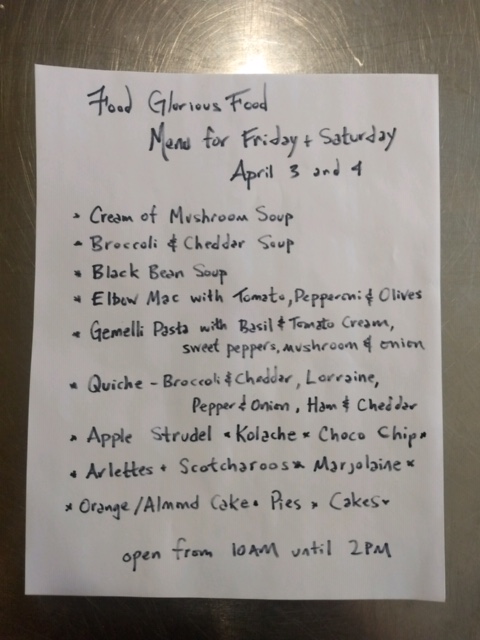 Food Glorious Food
Menu for Friday + Saturday
April 3 and 4
* Cream of Mushroom Soup
* Broccoli & Cheddar Soup
* Black Bean Soup
* Elbow Mac with Tomato, Pepperoni & Olives
* Gemelli Pasta with Basil & Tomato Cream,
sweet peppers, mushroom & onion
* Quiche - Broccoli & Cheddar, Lorraine,
Pepper & Onion, Ham & Cheddar
* Apple Strudel * Kolache * Choco Chip *
* Arlettes * Scotcharoos * Marjolaine *
* Orange/Almond Cake * Pies * Cakes *
open from 10AM until 2PM